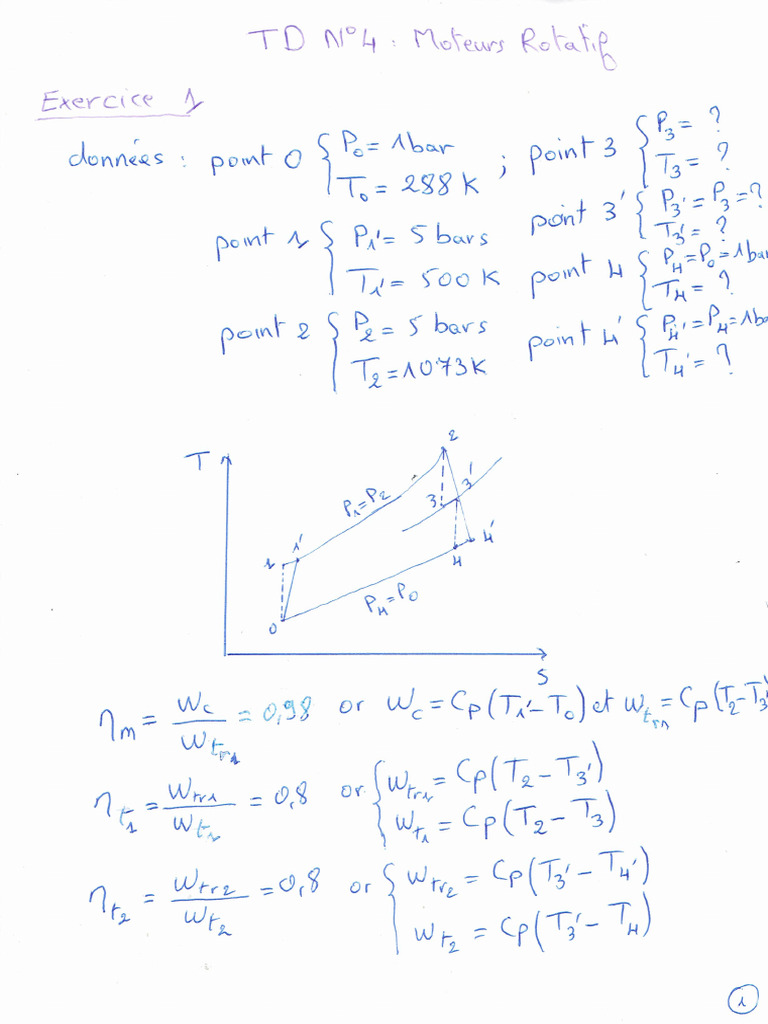 TD N°4 : Moteurs Rotatifs
Exercice 1
données : point 0 { P₀ = 1bar ; point 3 { P₃ = ?
T₀ = 288 K T₃ = ?
point 1 { P₁' = 5 bars point 3' { P₃' = P₃ = ?
T₁' = 500 K T₃' = ?
point 4 { P₄ = P₀ = 1bar
T₄ = ?
point 2 { P₂ = 5 bars point 4' { P₄' = P₄ = 1ba
T₂ = 1073 K T₄' = ?
T
2
P₁=P₂
3 3'
1 1'
4 4'
P₄=P₀
0
S
ηm = Wc / Wtr₁ = 0,98 or Wc = Cp(T₁' − T₀) et Wtr₁ = Cp(T₂ − T₃'
ηt₁ = Wtr1 / Wt₁ = 0,8 or { Wtr1 = Cp(T₂ − T₃')
Wt₁ = Cp(T₂ − T₃)
ηt₂ = Wtr2 / Wt₂ = 0,8 or { Wtr₂ = Cp(T₃' − T₄')
Wt₂ = Cp(T₃' − T₄)
1